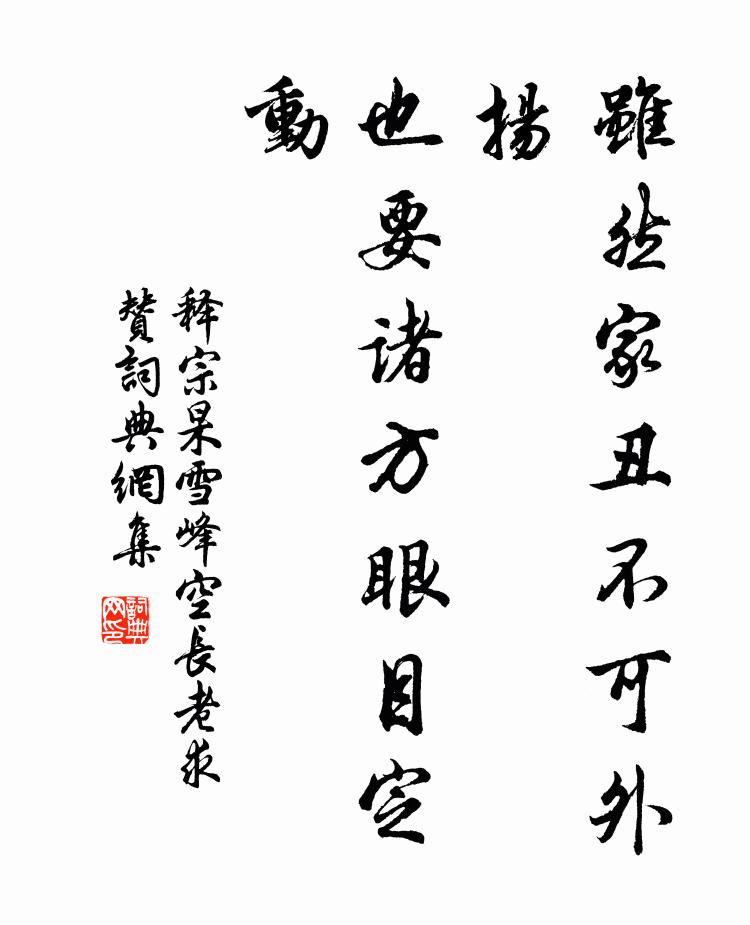 雖然家丑不可外
揚
也要诸方眼目定
動
释宗杲雪峰空長老求
赞詞典網集
詞典
网印